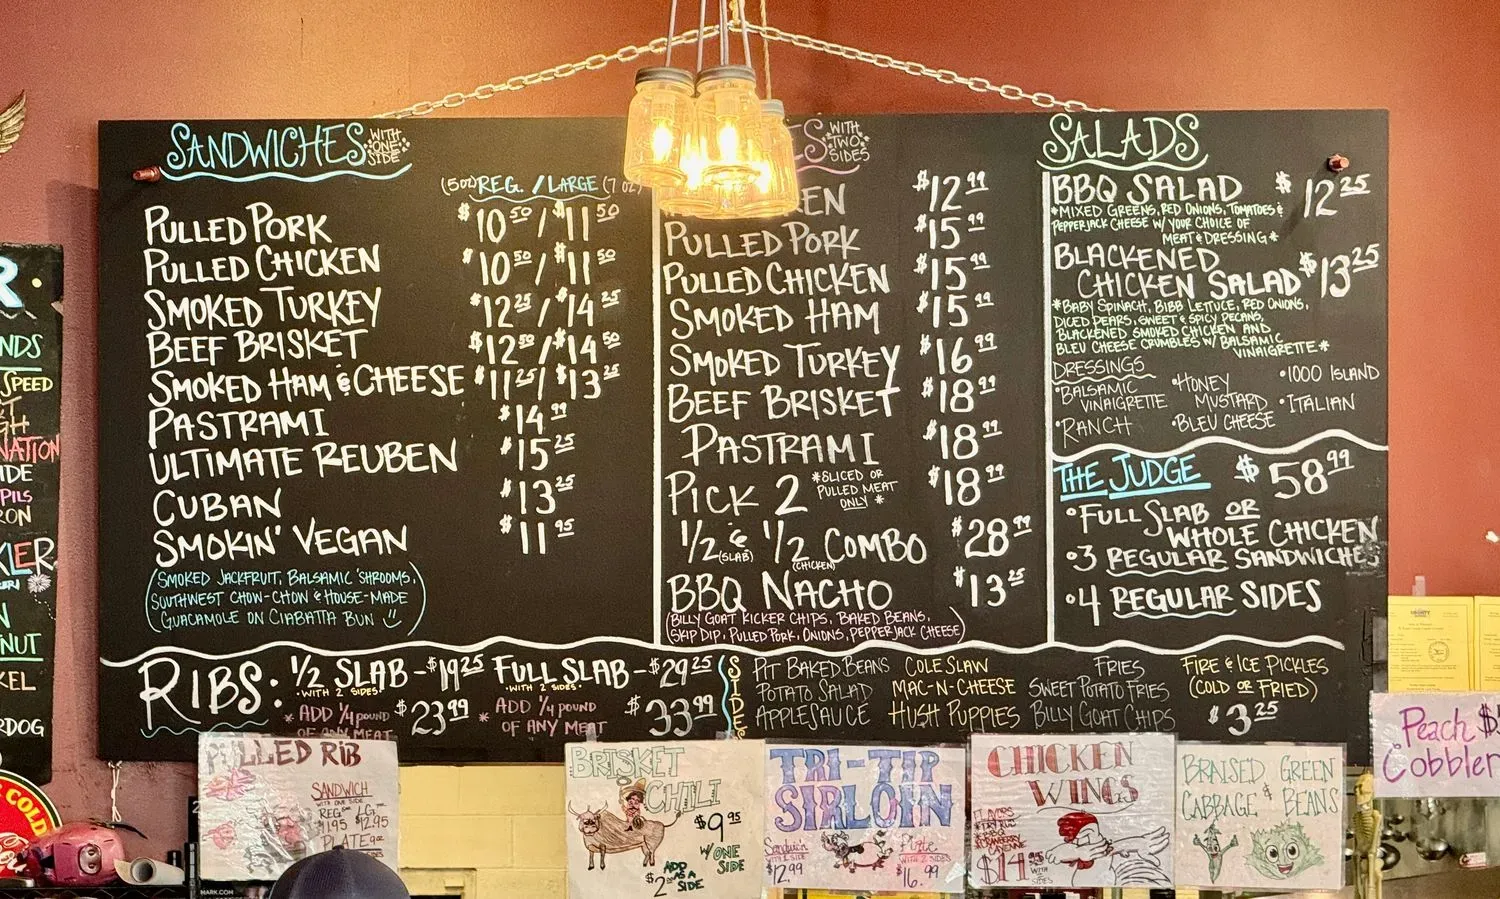 SANDWICHES WITH ONE SIDE
(5 OZ) REG. / LARGE (7 OZ)
PULLED PORK $10.50 / $11.50
PULLED CHICKEN $10.50 / $11.50
SMOKED TURKEY $12.25 / $14.25
BEEF BRISKET $12.50 / $14.50
SMOKED HAM & CHEESE $11.25 / $13.25
PASTRAMI $14.99
ULTIMATE REUBEN $15.25
CUBAN $13.25
SMOKIN' VEGAN $11.95
(SMOKED JACKFRUIT, BALSAMIC 'SHROOMS,
SOUTHWEST CHOW-CHOW & HOUSE-MADE
GUACAMOLE ON CIABATTA BUN !!)
ES WITH TWO SIDES
EN $12.99
PULLED PORK $15.99
PULLED CHICKEN $15.99
SMOKED HAM $15.99
SMOKED TURKEY $16.99
BEEF BRISKET $18.99
PASTRAMI $18.99
PICK 2 *SLICED OR PULLED MEAT ONLY* $18.99
1/2 (SLAB) & 1/2 (CHICKEN) COMBO $28.99
BBQ NACHO $13.25
(BILLY GOAT KICKER CHIPS, BAKED BEANS,
SKIP DIP, PULLED PORK, ONIONS, PEPPERJACK CHEESE)
SALADS
BBQ SALAD $12.25
*MIXED GREENS, RED ONIONS, TOMATOES &
PEPPERJACK CHEESE W/ YOUR CHOICE OF
MEAT & DRESSING*
BLACKENED
CHICKEN SALAD $13.25
*BABY SPINACH, BIBB LETTUCE, RED ONIONS,
DICED PEARS, SWEET & SPICY PECANS,
BLACKENED SMOKED CHICKEN AND
BLEU CHEESE CRUMBLES W/ BALSAMIC
VINAIGRETTE*
DRESSINGS
•BALSAMIC VINAIGRETTE
•RANCH
•HONEY MUSTARD
•BLEU CHEESE
•1000 ISLAND
•ITALIAN
THE JUDGE $58.99
•FULL SLAB OR
WHOLE CHICKEN
•3 REGULAR SANDWICHES
•4 REGULAR SIDES
RIBS: 1/2 SLAB - $19.25 FULL SLAB - $29.25
•WITH 2 SIDES• •WITH 2 SIDES•
* ADD 1/4 POUND OF ANY MEAT $23.99 * ADD 1/4 POUND OF ANY MEAT $33.99
SIDES
PIT BAKED BEANS COLE SLAW FRIES FIRE & ICE PICKLES
POTATO SALAD MAC-N-CHEESE SWEET POTATO FRIES (COLD OR FRIED)
APPLESAUCE HUSH PUPPIES BILLY GOAT CHIPS $3.25
PULLED RIB
SANDWICH
WITH ONE SIDE
REG. LG.
$12.95
PLATE
BRISKET
CHILI
$9.95
W/ ONE
SIDE
ADD
AS A
SIDE
TRI-TIP
SIRLOIN
Sandwich Plate
WITH 1 SIDE WITH 2 SIDES
$12.99 $16.99
CHICKEN
WINGS
$14
WITH 2
SIDES
BRAISED GREEN
CABBAGE & BEANS
Peach $
Cobbler
NDS
SPEED
NATION
IDE
PILS
RON
KLER
NUT
KEL
RDOG
COLD
MARK.COM